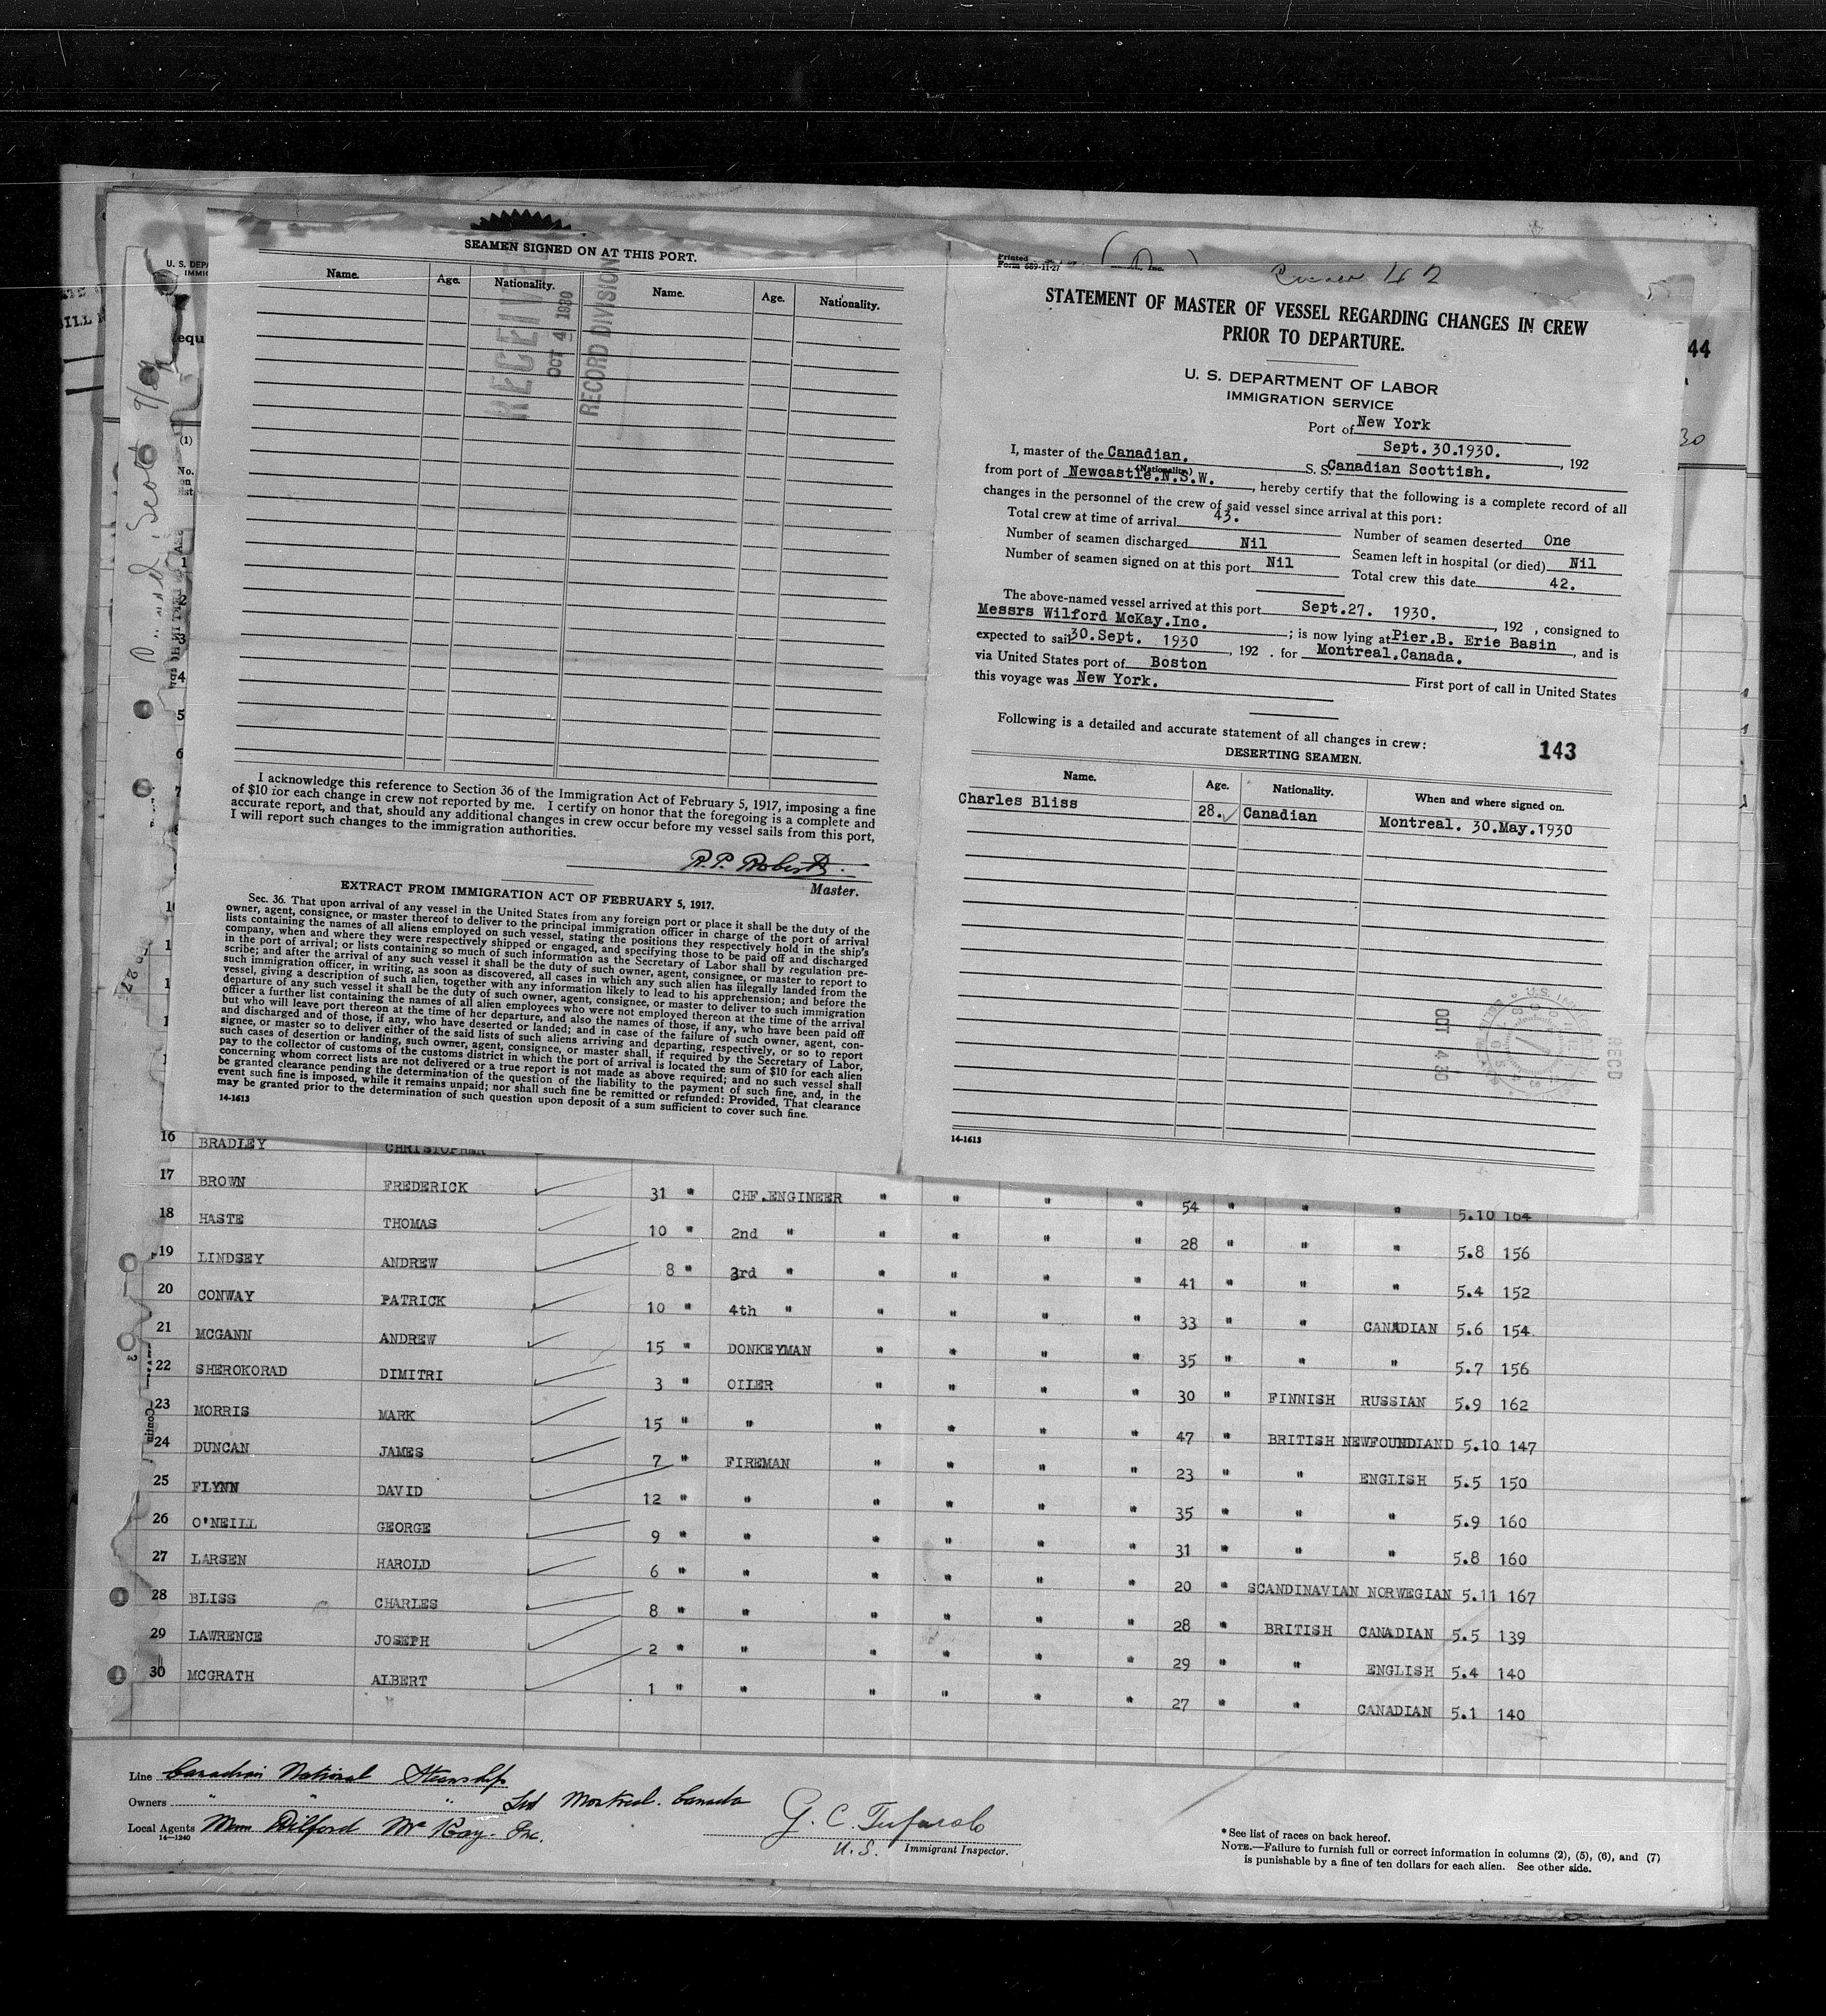 SEAMEN SIGNED ON AT THIS PORT.
Name. Age. Nationality. Name. Age. Nationality.
RECEIVED
OCT 4 1930
RECORD DIVISION
I acknowledge this reference to Section 36 of the Immigration Act of February 5, 1917, imposing a fine
of $10 for each change in crew not reported by me. I certify on honor that the foregoing is a complete and
accurate report, and that, should any additional changes in crew occur before my vessel sails from this port,
I will report such changes to the immigration authorities.
R. P. Roberts.
Master.
EXTRACT FROM IMMIGRATION ACT OF FEBRUARY 5, 1917.
Sec. 36. That upon arrival of any vessel in the United States from any foreign port or place it shall be the duty of the
owner, agent, consignee, or master thereof to deliver to the principal immigration officer in charge of the port of arrival
lists containing the names of all aliens employed on such vessel, stating the positions they respectively hold in the ship's
company, when and where they were respectively shipped or engaged, and specifying those to be paid off and discharged
in the port of arrival; or lists containing so much of such information as the Secretary of Labor shall by regulation pre-
scribe; and after the arrival of any such vessel it shall be the duty of such owner, agent, consignee, or master to report to
such immigration officer, in writing, as soon as discovered, all cases in which any such alien has illegally landed from the
vessel, giving a description of such alien, together with any information likely to lead to his apprehension; and before the
departure of any such vessel it shall be the duty of such owner, agent, consignee, or master to deliver to such immigration
officer a further list containing the names of all alien employees who were not employed thereon at the time of the arrival
but who will leave port thereon at the time of her departure, and also the names of those, if any, who have been paid off
and discharged and of those, if any, who have deserted or landed; and in case of the failure of such owner, agent, con-
signee, or master so to deliver either of the said lists of such aliens arriving and departing, respectively, or so to report
such cases of desertion or landing, such owner, agent, consignee, or master shall, if required by the Secretary of Labor,
pay to the collector of customs of the customs district in which the port of arrival is located the sum of $10 for each alien
concerning whom correct lists are not delivered or a true report is not made as above required; and no such vessel shall
be granted clearance pending the determination of the question of the liability to the payment of such fine, and, in the
event such fine is imposed, while it remains unpaid; nor shall such fine be remitted or refunded: Provided, That clearance
may be granted prior to the determination of such question upon deposit of a sum sufficient to cover such fine.
14-1613
Printed
Form 689-11-27
Inc.
42
STATEMENT OF MASTER OF VESSEL REGARDING CHANGES IN CREW
PRIOR TO DEPARTURE.
U. S. DEPARTMENT OF LABOR
IMMIGRATION SERVICE
Port of New York
Sept. 30.1930. , 192
I, master of the Canadian. S. S. Canadian Scottish.
(Nationality)
from port of Newcastle.N.S.W. , hereby certify that the following is a complete record of all
changes in the personnel of the crew of said vessel since arrival at this port:
Total crew at time of arrival 43. Number of seamen deserted One
Number of seamen discharged Nil Seamen left in hospital (or died) Nil
Number of seamen signed on at this port Nil Total crew this date 42.
The above-named vessel arrived at this port Sept.27. 1930. , 192 , consigned to
Messrs Wilford McKay.Inc. ; is now lying at Pier.B. Erie Basin , and is
expected to sail 30.Sept. 1930 , 192 . for Montreal.Canada.
via United States port of Boston First port of call in United States
this voyage was New York.
Following is a detailed and accurate statement of all changes in crew:
143
DESERTING SEAMEN.
Name. Age. Nationality. When and where signed on.
Charles Bliss 28. Canadian Montreal. 30.May.1930
OCT 4 30
REC'D
14-1613
44
30
16 BRADLEY CHRISTOPHER
17 BROWN FREDERICK 31 " CHF.ENGINEER " " " " 54 " " " 5.10 164
18 HASTE THOMAS 10 " 2nd " " " " " 28 " " " 5.8 156
19 LINDSEY ANDREW 8 " 3rd " " " " " 41 " " " 5.4 152
20 CONWAY PATRICK 10 " 4th " " " " " 33 " " CANADIAN 5.6 154
21 MCGANN ANDREW 15 " DONKEYMAN " " " " 35 " " " 5.7 156
22 SHEROKORAD DIMITRI 3 " OILER " " " " 30 " FINNISH RUSSIAN 5.9 162
23 MORRIS MARK 15 " " " " " " 47 " BRITISH NEWFOUNDLAND 5.10 147
24 DUNCAN JAMES 7 " FIREMAN " " " " 23 " " ENGLISH 5.5 150
25 FLYNN DAVID 12 " " " " " " 35 " " " 5.9 160
26 O'NEILL GEORGE 9 " " " " " " 31 " " " 5.8 160
27 LARSEN HAROLD 6 " " " " " " 20 " SCANDINAVIAN NORWEGIAN 5.11 167
28 BLISS CHARLES 8 " " " " " " 28 " BRITISH CANADIAN 5.5 139
29 LAWRENCE JOSEPH 2 " " " " " " 29 " " ENGLISH 5.4 140
30 MCGRATH ALBERT 1 " " " " " " 27 " " CANADIAN 5.1 140
Line Canadian National Steamships
Owners " " " Ltd Montreal. Canada
Local Agents Dilford McKay. Inc.
14-1240
G. C. Tufarolo
U.S. Immigrant Inspector.
* See list of races on back hereof.
NOTE.—Failure to furnish full or correct information in columns (2), (5), (6), and (7)
is punishable by a fine of ten dollars for each alien. See other side.